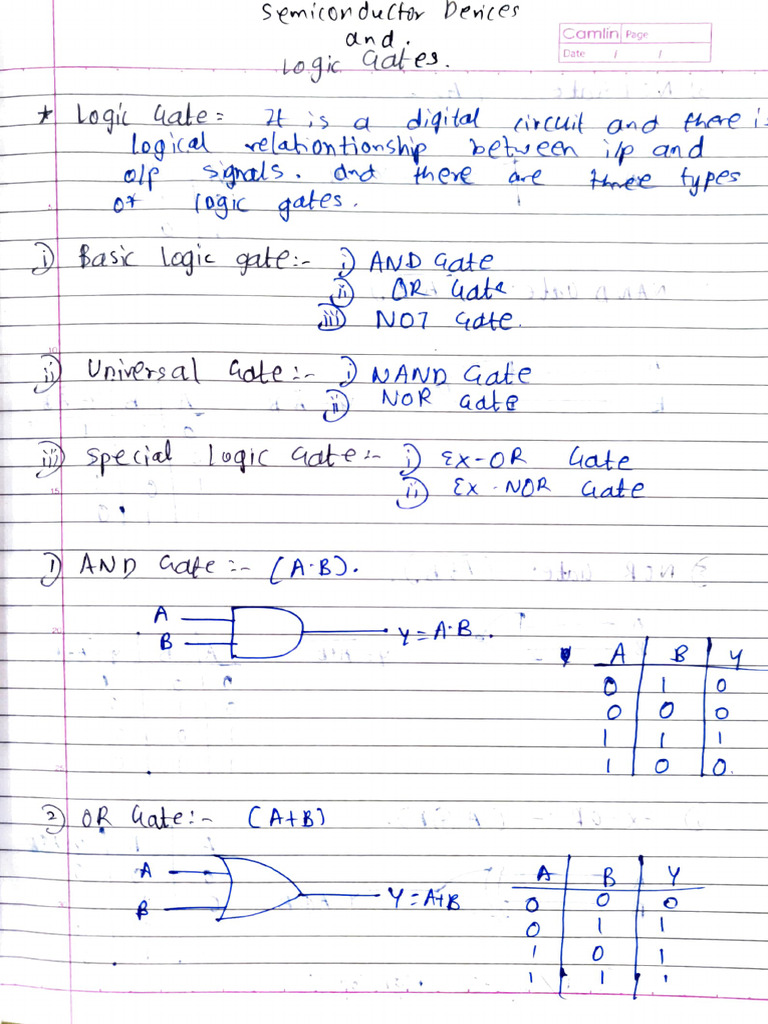 Semiconductor Devices
and.
Logic Gates.
Camlin Page
Date / /
* Logic Gate = It is a digital circuit and there is
logical relationtionship between i/p and
o/p signals. and there are three types
of logic gates.
i) Basic Logic gate:- i) AND Gate
ii) OR Gate
iii) NOT Gate.
ii) Universal Gate:- i) NAND Gate
ii) NOR Gate
iii) Special Logic Gate:- i) Ex-OR Gate
ii) Ex-NOR Gate
1) AND Gate:- (A·B).
A
B
Y = A·B.
A B Y
0 1 0
0 0 0
1 1 1
1 0 0.
2) OR Gate:- (A+B)
A
B
Y = A+B
A B Y
0 0 0
0 1 1
1 0 1
1 1 1